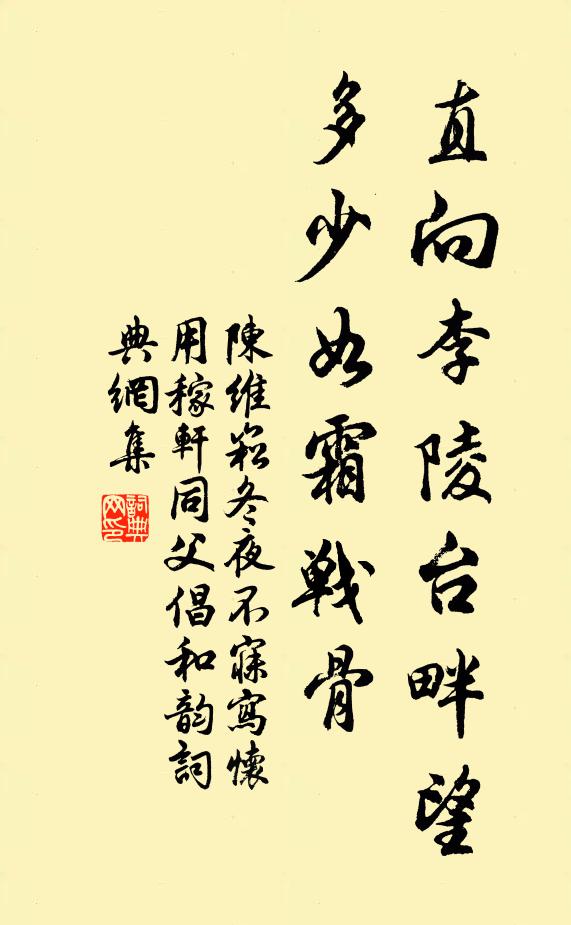 直向李陵台畔望
多少如霜戰骨
陳維崧冬夜不寐寫懷
用稼軒同父倡和韵詞
典網集
詞典网印